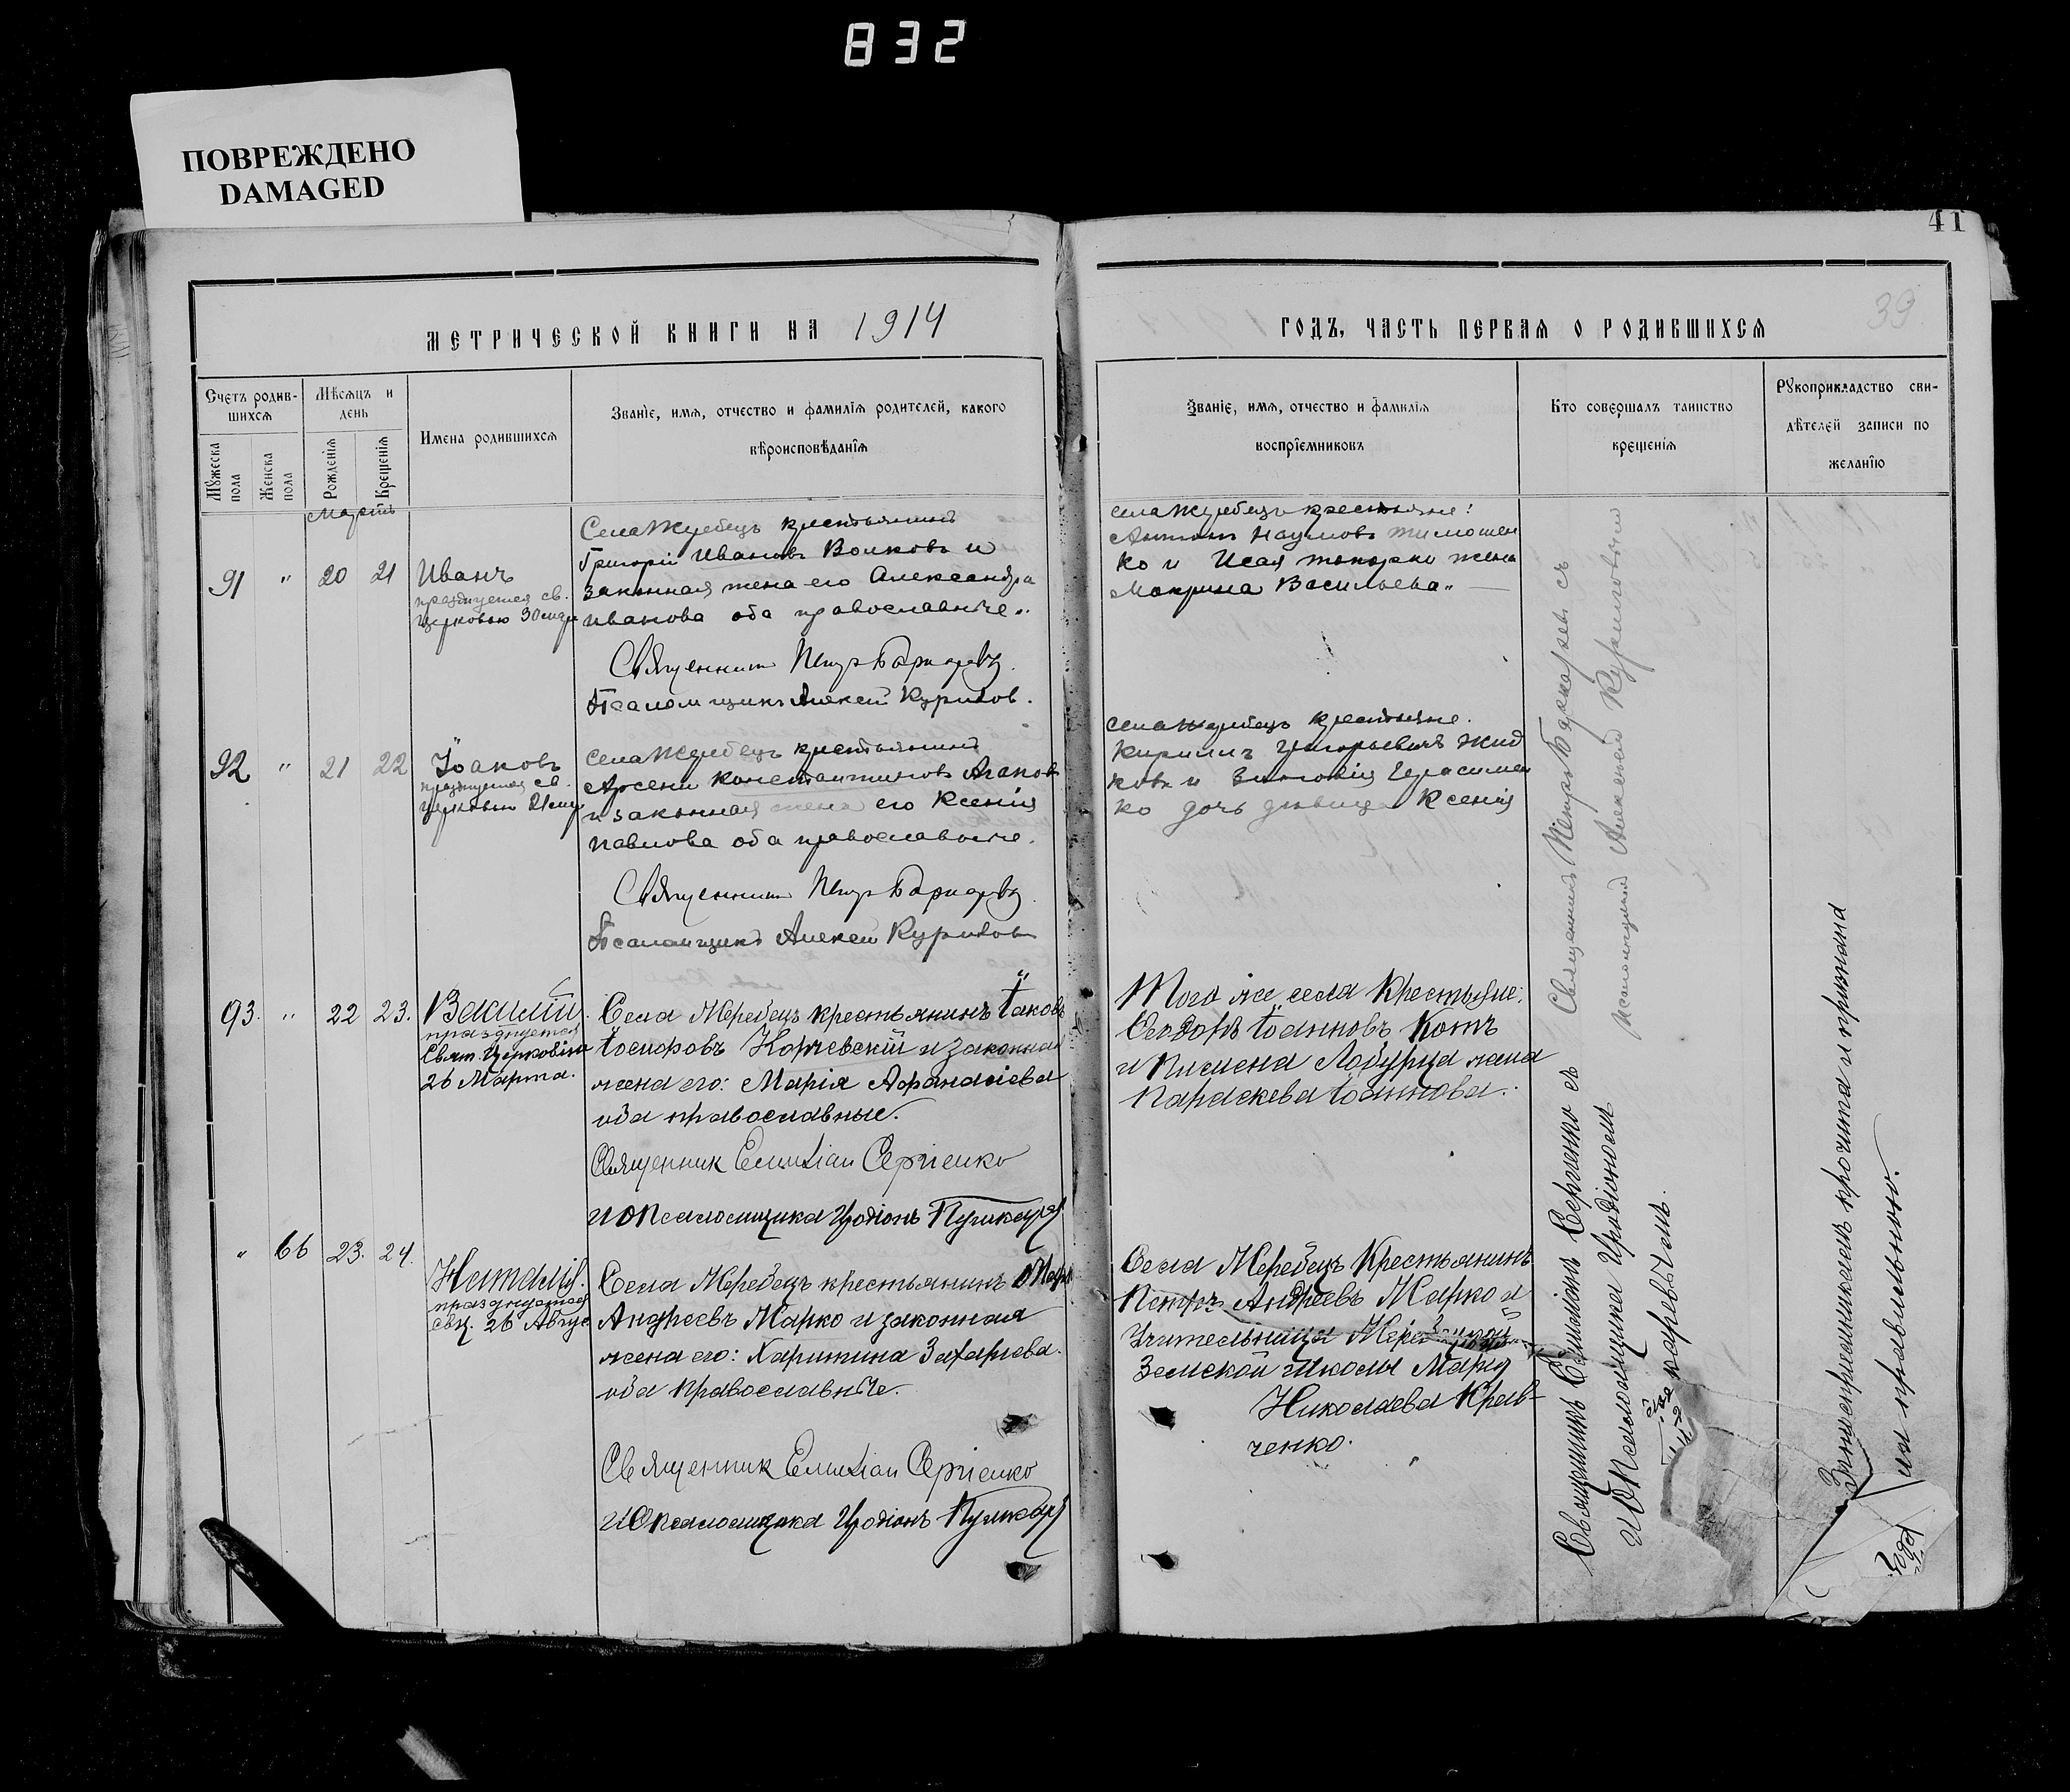 832
ПОВРЕЖДЕНО
DAMAGED
41
39
МЕТРИЧЕСКОЙ КНИГИ НА 1914
ГОДЪ, ЧАСТЬ ПЕРВАЯ О РОДИВШИХСЯ
Счетъ родив-
шихся
Мужеска пола
Женска пола
Мѣсяцъ и
день
Рожденія
Крещенія
Имена родившихся
Званіе, имя, отчество и фамилія родителей, какого
вѣроисповѣданія
Званіе, имя, отчество и фамилія
воспріемниковъ
Кто совершалъ таинство
крещенія
Рукоприкладство сви-
дѣтелей записи по
желанію
Мартъ
91 " 20 21
Иванъ
празднуется св.
церковью 30 мар
Села Жеребецъ крестьянинъ
Григорій Ивановъ Волковъ и
законная жена его Александра
Иванова оба православные.
Священникъ Петръ
Псаломщикъ Алексей Куриловъ.
села Жеребецъ крестьяне:
Антонъ Наумовъ Тимошен
ко и Исая жена
Макрина Васильева.
92 " 21 22
Іоаковъ
празднуется св.
церковью 21 мар
села Жеребецъ крестьянинъ
Арсени Константиновъ Агапов
и законная жена его Ксенія
Павлова оба православные.
Священникъ Петръ
Псаломщикъ Алексей Куриловъ
села Жеребецъ крестьяне.
Кириллъ Григорьевичъ Жид
ковъ и Зиновія Герасимен
ко дочь дѣвица Ксенія
93. " 22 23.
Василій.
празднуется
Свят. Церковію
26 Марта.
Села Жеребецъ крестьянинъ Іаковъ
Іосифовъ Корчевскій и законная
жена его: Марія Афанасіева
оба православные.
Священник Емилiан Сергіенко
И О Псаломщика Иродіонъ Пушкарь
Того же села Крестьяне:
Ѳеодоръ Іоанновъ Котъ
и Пимена Лабурца жена
Параскева Іоаннова.
" 66 23. 24.
Наталія.
празднуется
свц. 26 Авгус
Села Жеребецъ крестьянинъ
Андреевъ Марко и законная
жена его: Харитина Захарьева.
оба Православные.
Священник Емилiан Сергіенко
И О Псаломщика Иродіонъ Пушкарь
Села Жеребецъ Крестьянинъ
Петръ Андреевъ Марко и
Учительница
Земской школы Марія
Николаева Крав-
ченко.
Священникъ Петръ съ
псаломщикомъ Алексеемъ Куриловымъ
Священникъ Емиліанъ Сергіенко съ
И О Псаломщика Иродіономъ